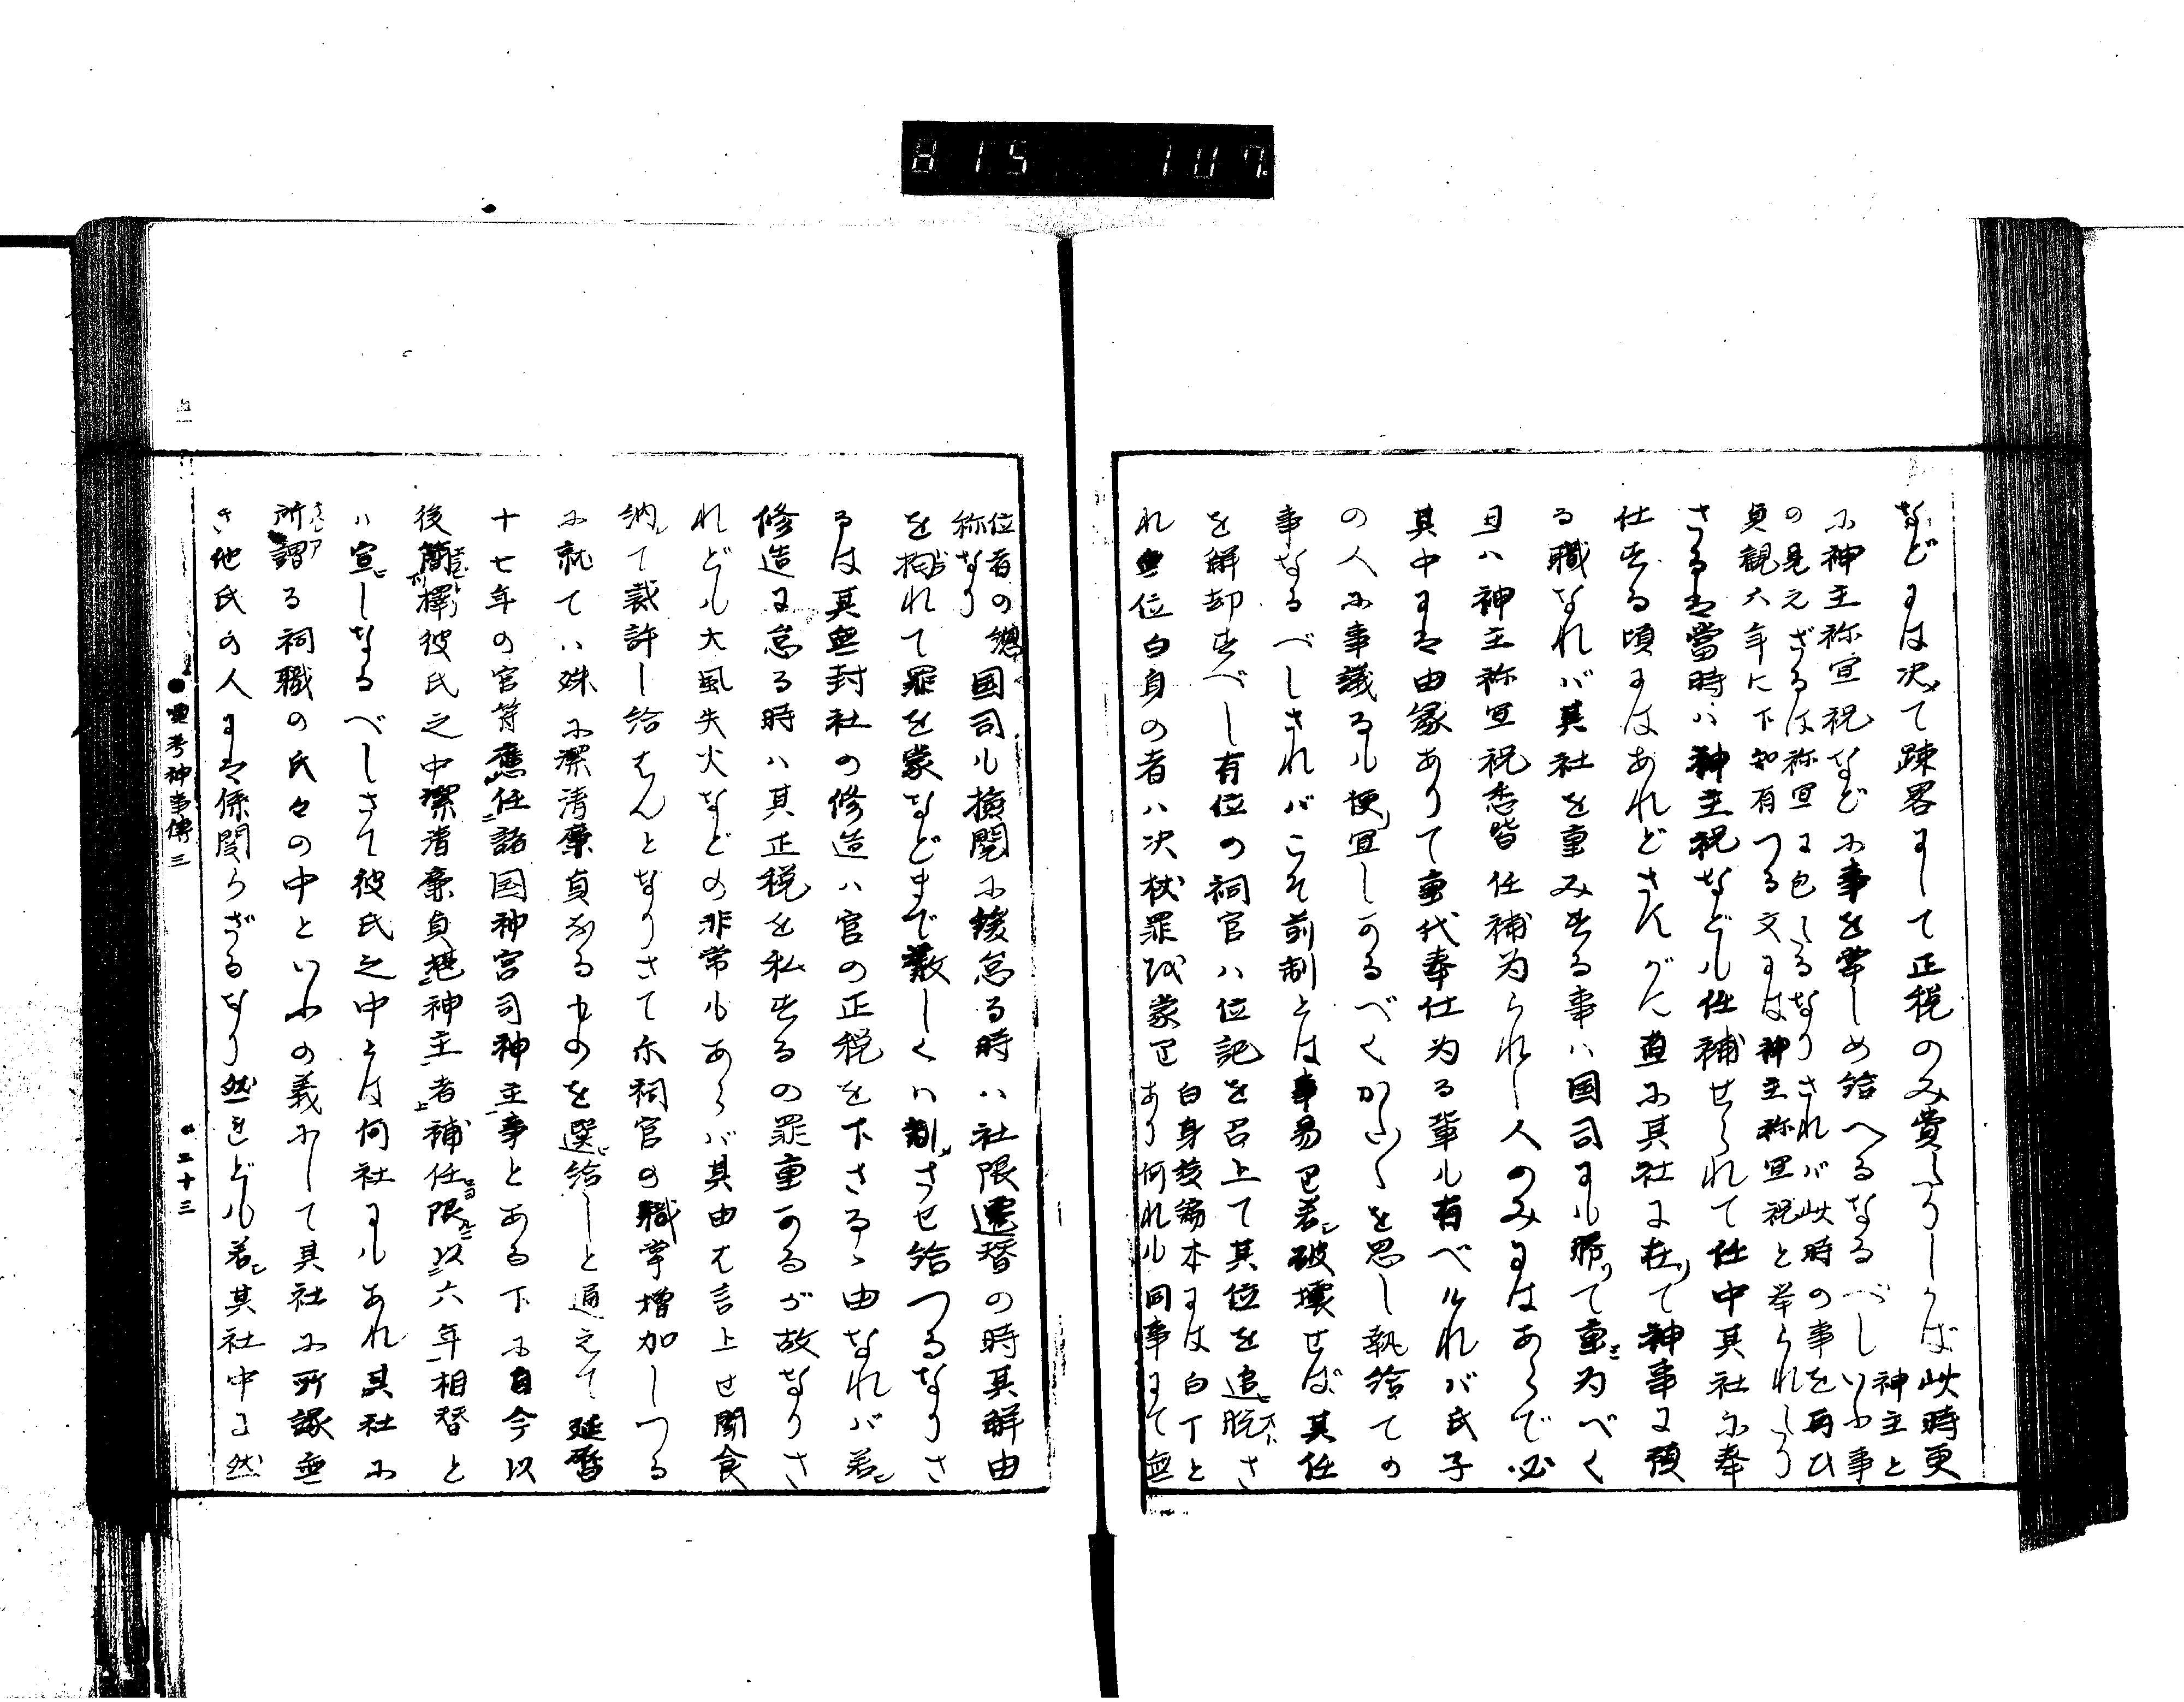 815 107
などには决て踈畧にして正税のみ費たりしかば此時更
に神主祢宜祝などに事を掌しめ給へるなるべしいふ事 神主と
の見えざるは祢宜に包たるなりされバ此時の事を再ひ
貞観六年に下知有つる文には神主祢宜祝と挙られたり
さるは當時ハ神主祝なども任補せられて任中其社に奉
仕する頃にはあれどさんがに直に其社に在て神事に預
る職なれバ其社を重みする事ハ国司にも勝て重為べく
且ハ神主祢宜祝悉皆任補為られし人のみにはあらで必
其中には由縁ありて重代奉仕為る輩も有べけれバ氏子
の人に事議るも便宜しかるべくかたがたを思し執給ての
事なるべしされバこそ前制とは事易て若破壊せば其任
を解却すべし有位の祠官ハ位記を召上て其位を追脱さ
れ無位白身の者ハ决杖罪を蒙て 白身抜萃本には白丁と
あり何れも同事にて無
位者の總
称なり 国司も撿閲に緩怠る時ハ社限遷替の時其解由
を拘れて罪を蒙などまで厳しくハ制させ給つるなりさ
るは其無封社の修造ハ官の正税を下さるゝ由なれバ若
修造に怠る時ハ其正税を私するの罪重かるが故なりさ
れども大風失火などの非常もあらバ其由を言上せ聞食
納て裁許し給はんとなりさて尓祠官の職掌増加しつる
に就てハ殊に潔清廉貞なるものを選給しと通えて延暦
十七年の官符應任諸国神宮司神主事とある下に自今以
後簡擇彼氏之中潔清廉貞堪神主者補任限以六年相替と
ハ宣しなるべしさて彼氏之中とは何社にもあれ其社に
所謂る祠職の氏々の中といふの義にして其社に所縁無
き他氏の人には係関らざるなり然れども若其社中に然
神事傳三
二十三